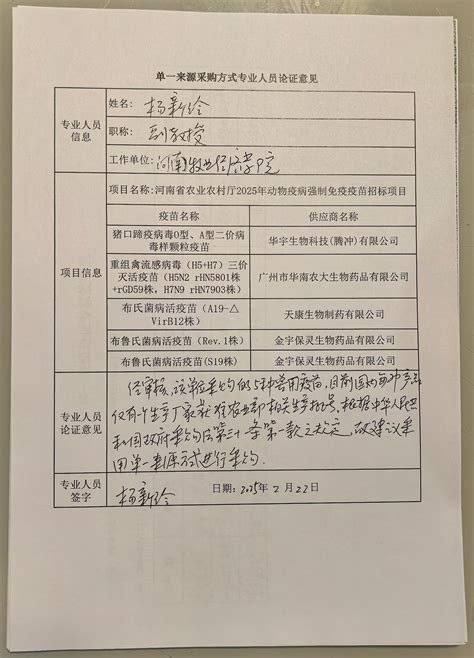 单一来源采购方式专业人员论证意见
专业人员
信息
姓名：杨新玲
职称：副教授
工作单位：河南牧业经济学院
项目信息
项目名称：河南省农业农村厅2025年动物疫病强制免疫疫苗招标项目
疫苗名称 供应商名称
猪口蹄疫病毒O型、A型二价病
毒样颗粒疫苗
华宇生物科技(腾冲)有限公司
重组禽流感病毒（H5+H7）三价
灭活疫苗（H5N2 rHN5801株
+rGD59株，H7N9 rHN7903株）
广州市华南农大生物药品有限公司
布氏菌病活疫苗（A19-△
VirB12株）
天康生物制药有限公司
布鲁氏菌病活疫苗（Rev.1株）
金宇保灵生物药品有限公司
布鲁氏菌病活疫苗(S19株)
金宇保灵生物药品有限公司
专业人员
论证意见
经审核，该单位采购的5种兽用疫苗，目前国内每种产品
仅有1个生产厂家获有农业部相关生产批号。根据中华人民共
和国政府采购法第三十一条第一款之规定，故建议采
用单一来源方式进行采购.
专业人员
签字
杨新玲
日期：2025年 2 月 22 日